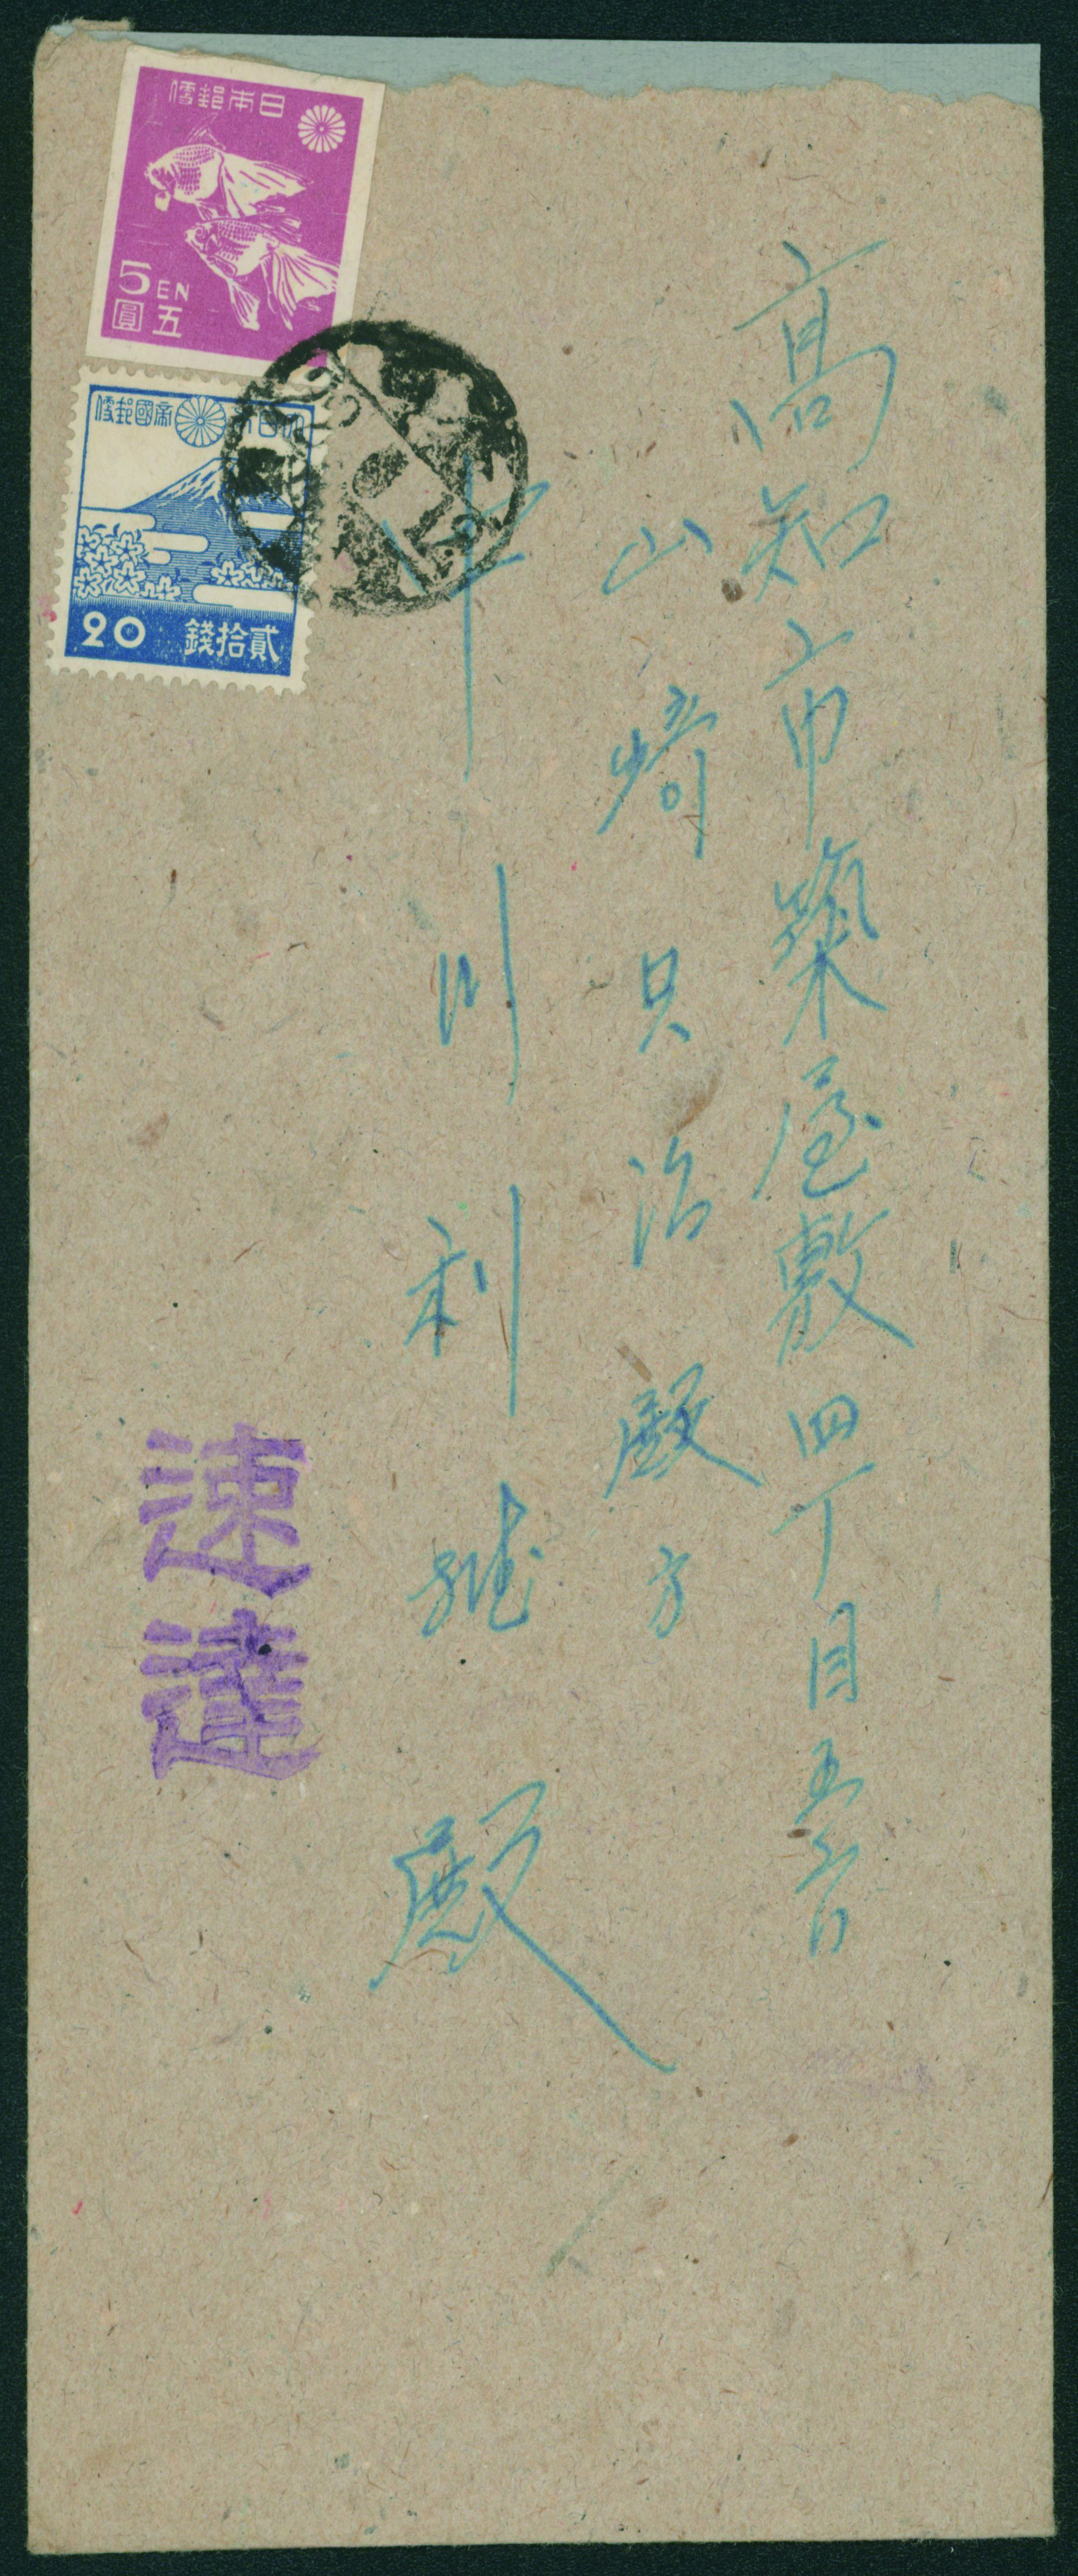 高知市築屋敷四丁目五番
山崎只治殿方
中川利雄殿
速達
日本郵便
5EN
五圓
大日本帝國郵便
20 貳拾錢